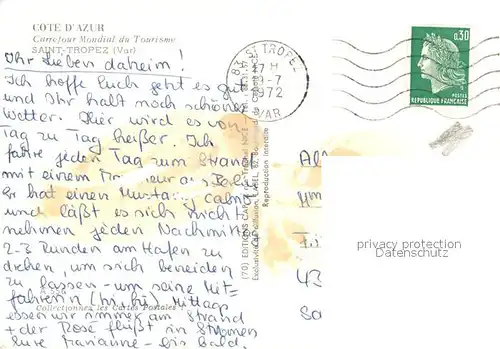 COTE D'AZUR
Carrefour Mondial du Tourisme
SAINT-TROPEZ (Var)
Ihr Lieben daheim!
Ich hoffe Euch geht es gut
und Ihr habt noch schönes
Wetter. Hier wird es von
Tag zu Tag heißer. Ich
fahre jeden Tag zum Strand
mit einem aus Berlin
Er hat einen Mustang
und läßt es sich nicht
nehmen jeden Nachmittag
2-3 Runden am Hafen zu
drehen, um sich beneiden
zu lassen - um seine Mit-
fahrerin (hi, hi). Mittags
Collectionnez les Cartes Postales
essen wir immer am Strand
+ der Rosé fließt in Strömen
Eure Marianne - bis bald.
83 ST TROPEZ
17 H
-7
1972
VAR
0,30
POSTES
REPUBLIQUE FRANÇAISE
Reproduction interdite
privacy protection
Datenschutz
43